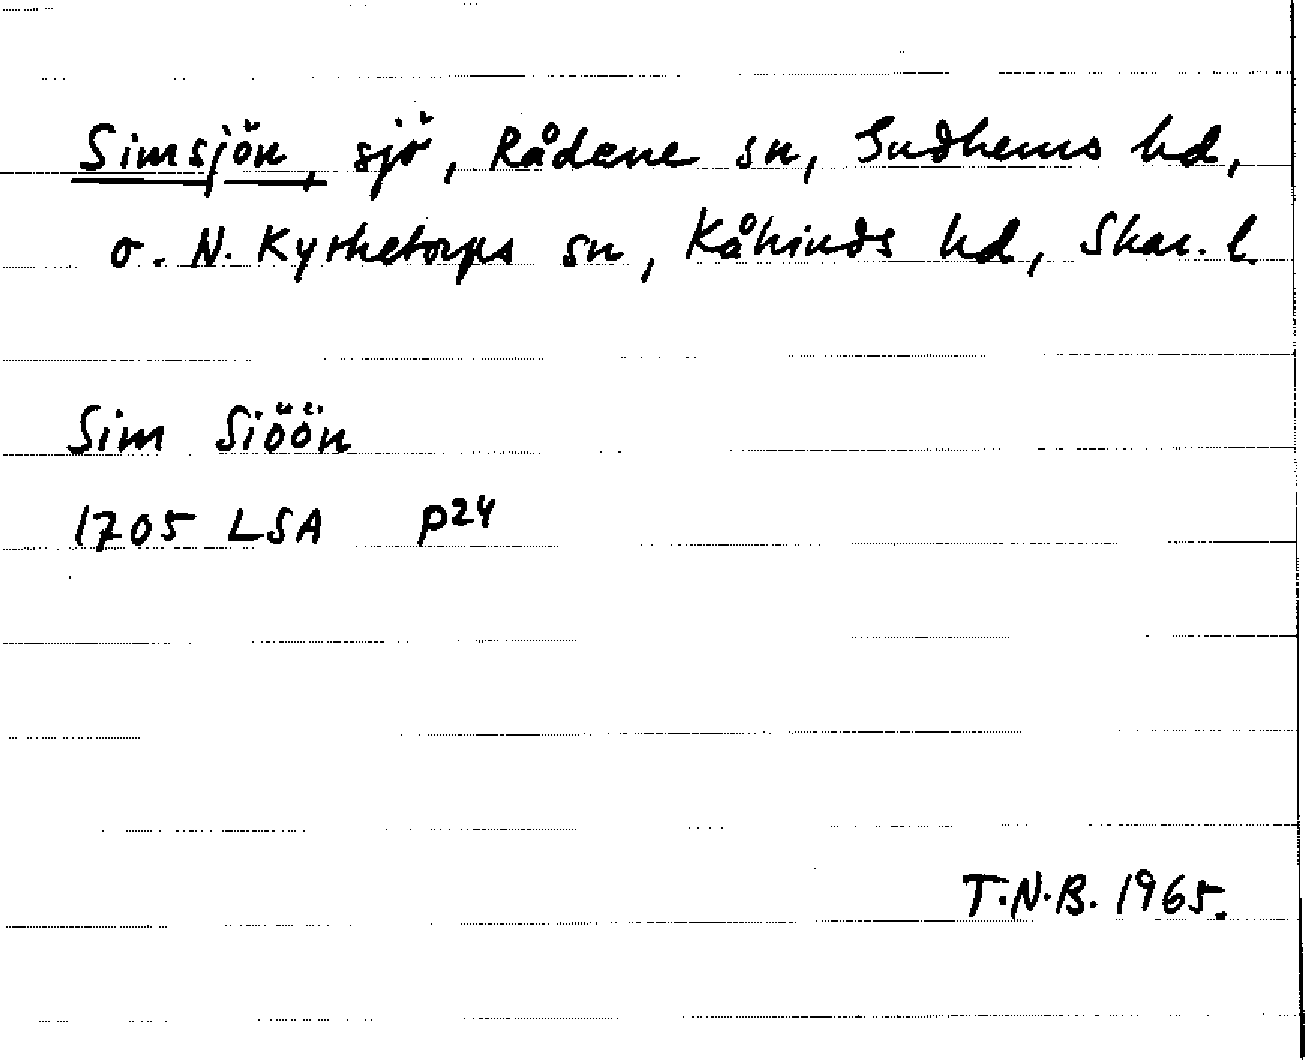 Simsjön, sjö, Rådene sn, Gudhems hd,
o. N. Kyrketorps sn, Kåkinds hd, Skar. l.
Sim Siöön
1705 LSA p24
T.N.B. 1965.